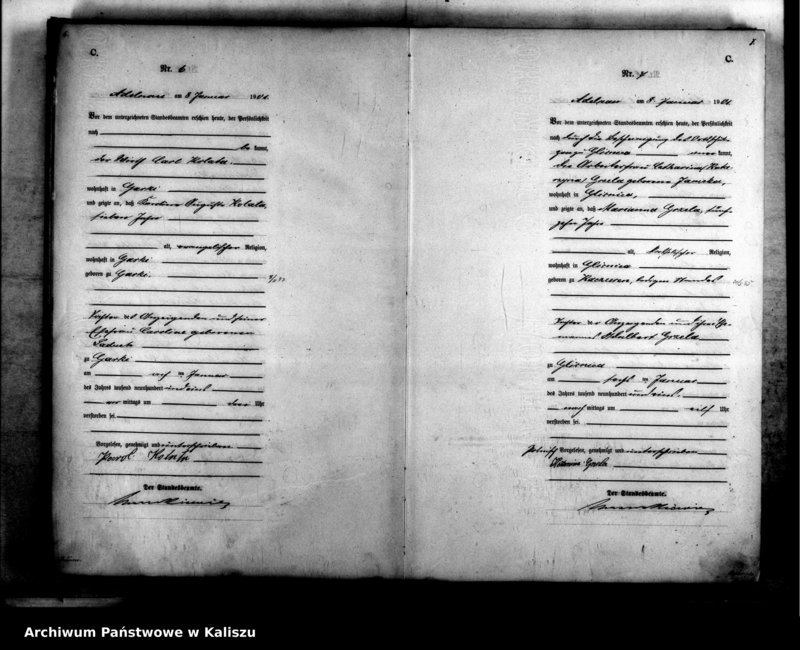 6.
C.
Nr. 6
Adelnau am 8 Januar 1901.
Vor dem unterzeichneten Standesbeamten erschien heute, der Persönlichkeit
nach
be kannt,
der Wirth Carl Kolata
wohnhaft in Garki
und zeigte an, daß Karoline Auguste Kolata,
sieben Jahr
alt, evangelischer Religion,
wohnhaft in Garki
geboren zu Garki.
Tochter des Anzeigenden und seiner
Ehefrau Caroline geborenen
zu Garki
am acht ten Januar
des Jahres tausend neunhundert und eins
vor mittags um drei Uhr
verstorben sei.
Vorgelesen, genehmigt und unterschrieben
Karol Kolata
Der Standesbeamte.
7.
C.
Nr. 7
Adelnau am 8. Januar 1901.
Vor dem unterzeichneten Standesbeamten erschien heute, der Persönlichkeit
nach durch die Bescheinigung des
zu Glisnica aner kannt,
die Arbeiterfrau Katharina
Grzela geborene
wohnhaft in Glisnica,
und zeigte an, daß Marianna Grzela, fünf-
zehn Jahr
alt, katholischer Religion,
wohnhaft in Glisnica
geboren zu ledigen Standes
Tochter der Anzeigenden und ihres Ehe-
manns Adalbert Grzela
zu Glisnica
am sechs ten Januar
des Jahres tausend neunhundert und eins
nach mittags um elf Uhr
verstorben sei.
Polnisch Vorgelesen, genehmigt und unterschrieben
Grzela
Der Standesbeamte.
Archiwum Państwowe w Kaliszu